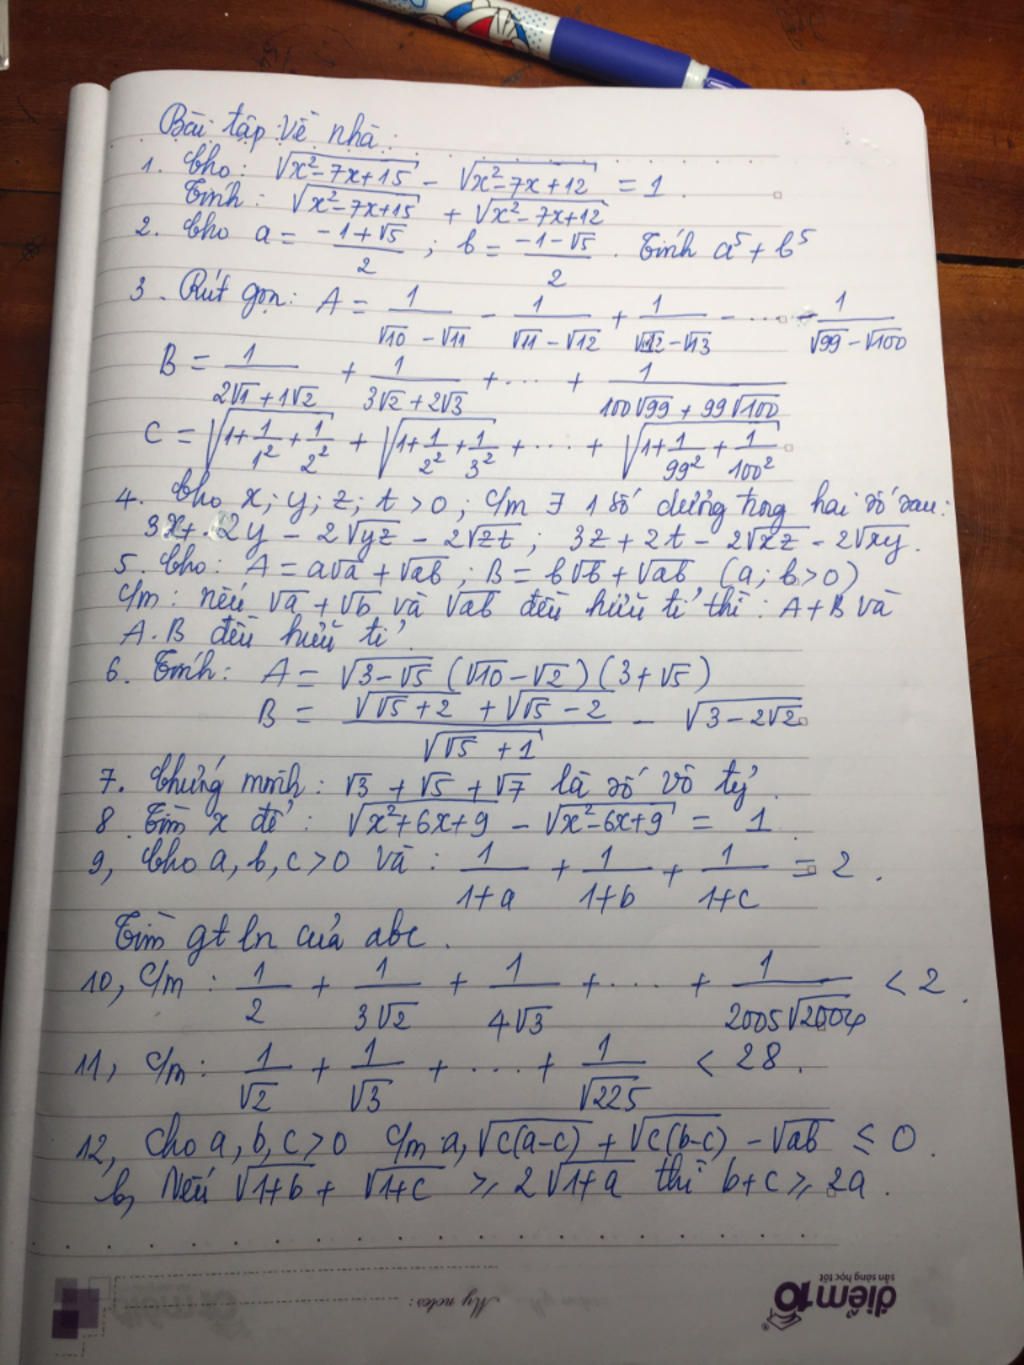 Bài tập về nhà:
1. Cho: √(x²-7x+15) - √(x²-7x+12) = 1.
Tính: √(x²-7x+15) + √(x²-7x+12)
2. Cho a = (-1+√5)/2 ; b = (-1-√5)/2 . Tính a⁵ + b⁵
3. Rút gọn: A = 1/(√10 - √11) - 1/(√11 - √12) + 1/(√12 - √13) - ... - 1/(√99 - √100)
B = 1/(2√1 + 1√2) + 1/(3√2 + 2√3) + ... + 1/(100√99 + 99√100)
C = √(1 + 1/1² + 1/2²) + √(1 + 1/2² + 1/3²) + ... + √(1 + 1/99² + 1/100²)
4. Cho x; y; z; t > 0 ; C/m ∃ 1 số dương trong hai số sau:
3x + 2y - 2√yz - 2√zt ; 3z + 2t - 2√xz - 2√xy.
5. Cho: A = a√a + √ab ; B = b√b + √ab (a; b > 0)
C/m: nếu √a + √b và √ab đều hữu tỉ thì: A + B và
A.B đều hữu tỉ.
6. Tính: A = √(3-√5) (√10 - √2)(3 + √5)
B = (√(√5+2) + √(√5-2))/√(√5+1) - √(3-2√2)
7. Chứng minh: √3 + √5 + √7 là số vô tỷ.
8. Tìm x để: √(x²+6x+9) - √(x²-6x+9) = 1.
9, Cho a, b, c > 0 và: 1/(1+a) + 1/(1+b) + 1/(1+c) = 2.
Tìm gt ln của abc.
10, C/m: 1/2 + 1/(3√2) + 1/(4√3) + ... + 1/(2005√2004) < 2.
11, C/m: 1/√2 + 1/√3 + ... + 1/√225 < 28.
12, Cho a, b, c > 0 C/m a, √(c(a-c)) + √(c(b-c)) - √ab ≤ 0.
b, Nếu √(1+b) + √(1+c) ≥ 2√(1+a) thì b+c ≥ 2a.
My notes:
điểm10
sẵn sàng học tốt